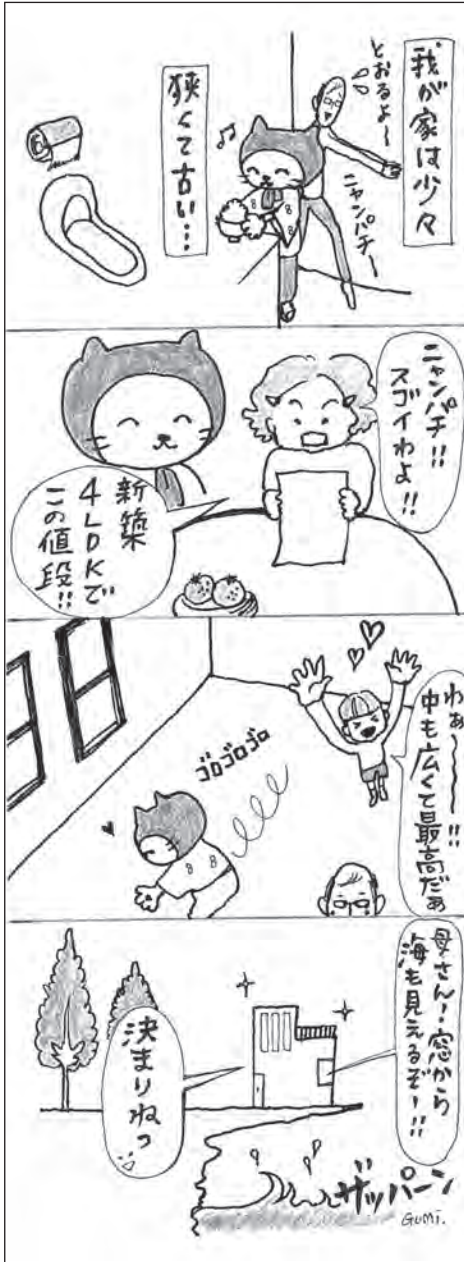 我が家は少々
とおるよ〜
ニャンパチ〜
狭くて古い…
ニャンパチ!!
スゴイわよ!!
新築
4LDKで
この値段!!
わぁ〜――!!
中も広くて最高だぁ
ゴロゴロゴロ
母さん!窓から
海も見えるぞー!!
決まりねっ
ザッパーン
GUMI.